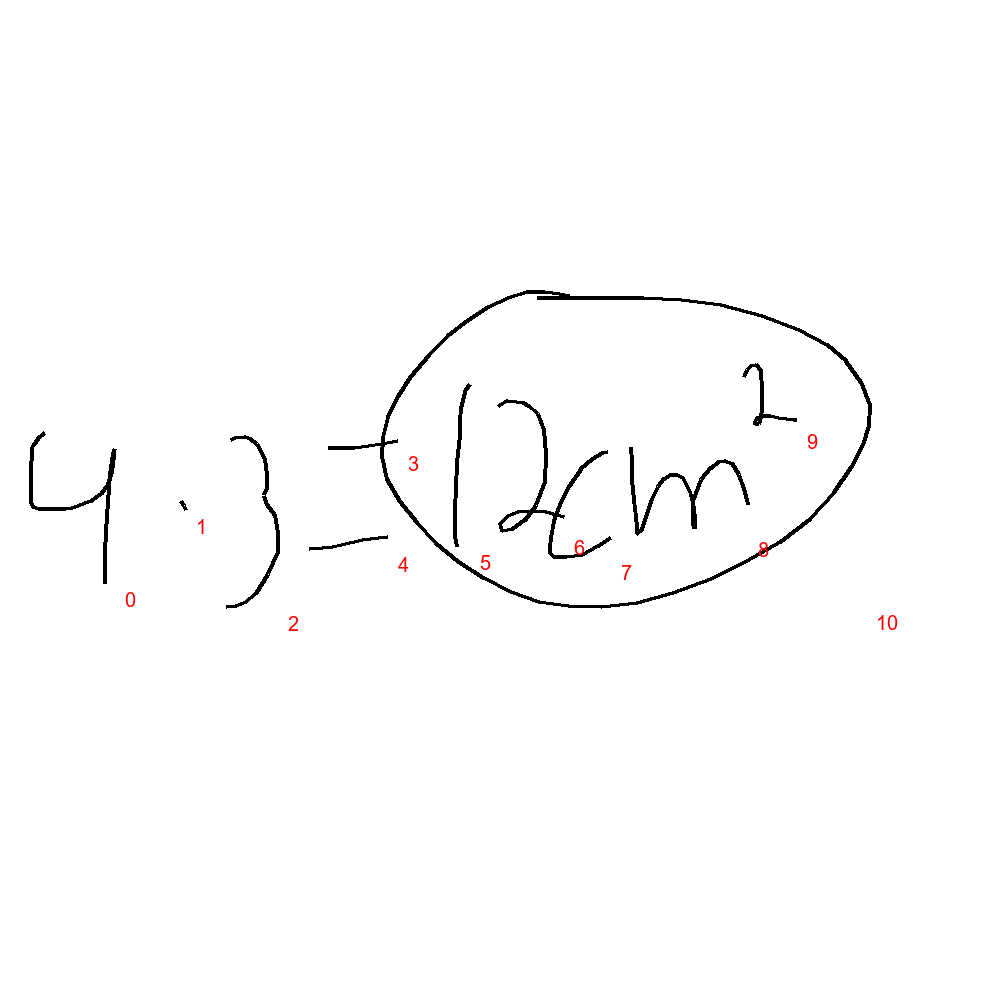 4 · 3 = 12cm²
0 1 2 3 4 5 6 7 8 9 10